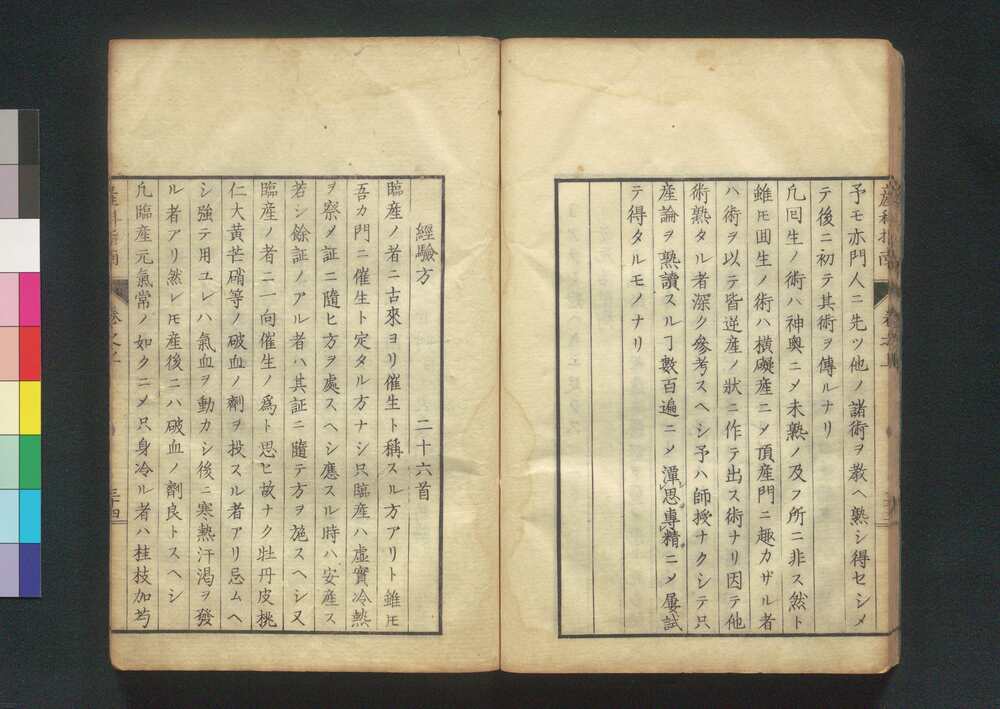 予モ亦門人ニ先ツ他ノ諸術ヲ教ヘ熟シ得セシメ
テ後ニ初テ其術ヲ傳ルナリ
凡回生ノ術ハ神奥ニメ未熟ノ及フ所ニ非ス然ト
雖モ回生ノ術ハ横礙産ニメ頂産門ニ趣カザル者
ハ術ヲ以テ皆逆産ノ狀ニ作テ出ス術ナリ因テ他
術熟タル者深ク參考スヘシ予ハ師授ナクシテ只
産論ヲ熟讀スルヿ數百遍ニメ潭思專精ニメ屢試
テ得タルモノナリ
經驗方 二十六首
臨産ノ者ニ古來ヨリ催生ト稱スル方アリト雖モ
吾カ門ニ催生ト定タル方ナシ只臨産ハ虛實冷熱
ヲ察メ証ニ隨ヒ方ヲ處スヘシ應スル時ハ安産ス
若シ餘証ノアル者ハ其証ニ隨テ方ヲ施スヘシ又
臨産ノ者ニ一向催生ノ爲ト思ヒ故ナク牡丹皮桃
仁大黄芒硝等ノ破血ノ劑ヲ投スル者アリ忌ムヘ
シ強テ用ユレハ氣血ヲ動カシ後ニ寒熱汗渴ヲ發
ル者アリ然レモ産後ニハ破血ノ劑良トスヘシ
凡臨産元氣常ノ如クニメ只身冷ル者ハ桂枝加芍